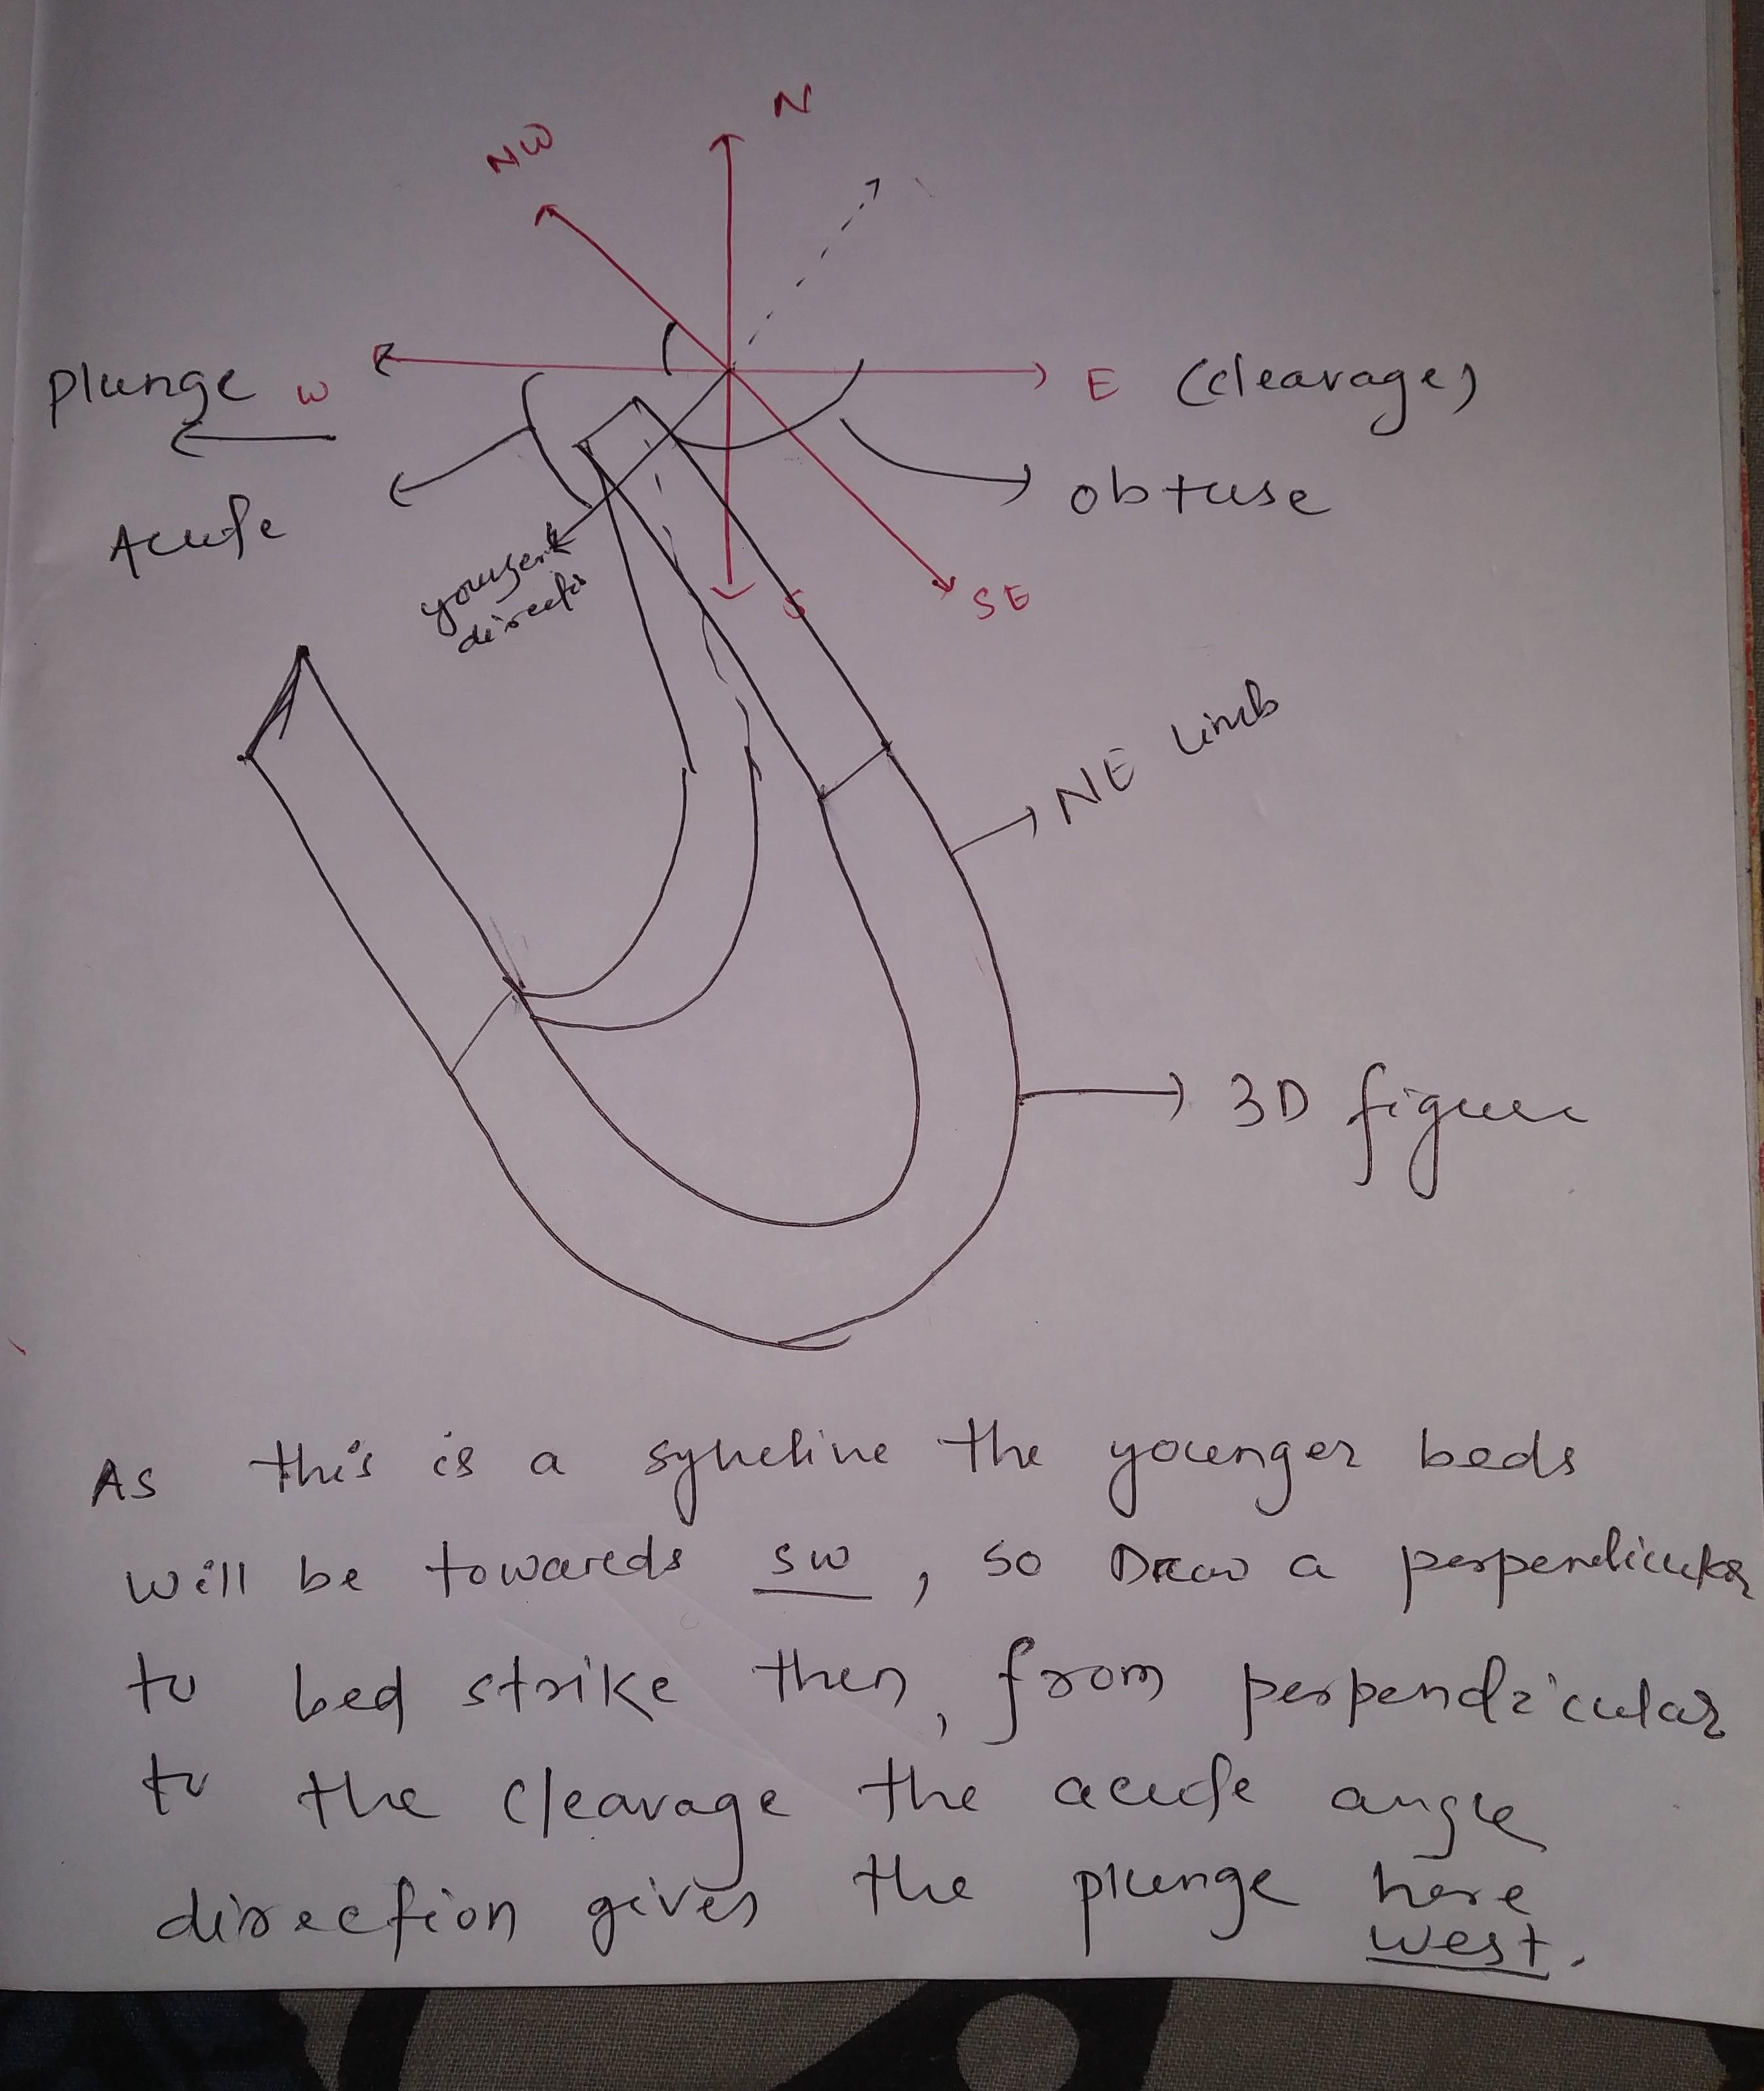 N
NW
plunge W
E (cleavage)
Acute
obtuse
younger
direction
S
SE
NE Limb
3D figure
As this is a syncline the younger beds
will be towards SW, so Draw a perpendicular
to bed strike then, from perpendicular
to the cleavage the acute angle
direction gives the plunge here
west.